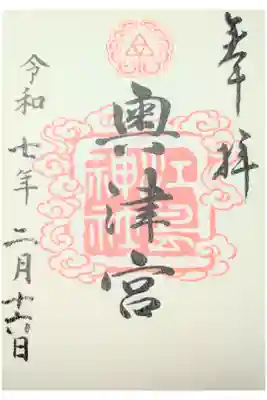 奉拝
奥津宮
江島神社
令和七年二月十六日